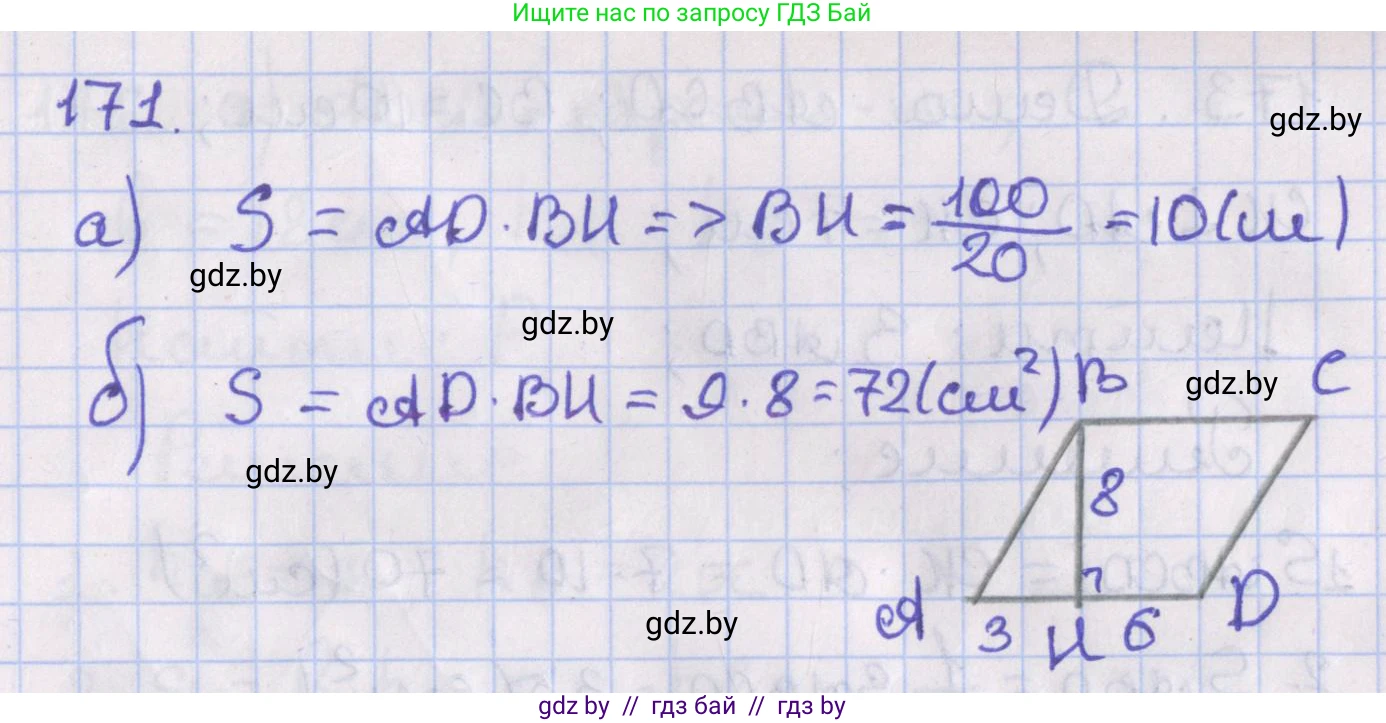 Ищите нас по запросу ГДЗ Бай
171.
gdz.by
а) S = AD · BH => BH = 100/20 = 10 (см)
gdz.by
gdz.by
б) S = AD · BH = 9 · 8 = 72 (см²)
B gdz.by C
gdz.by
8
A 3 H 6 D
gdz.by
gdz.by // гдз бай // гдз by